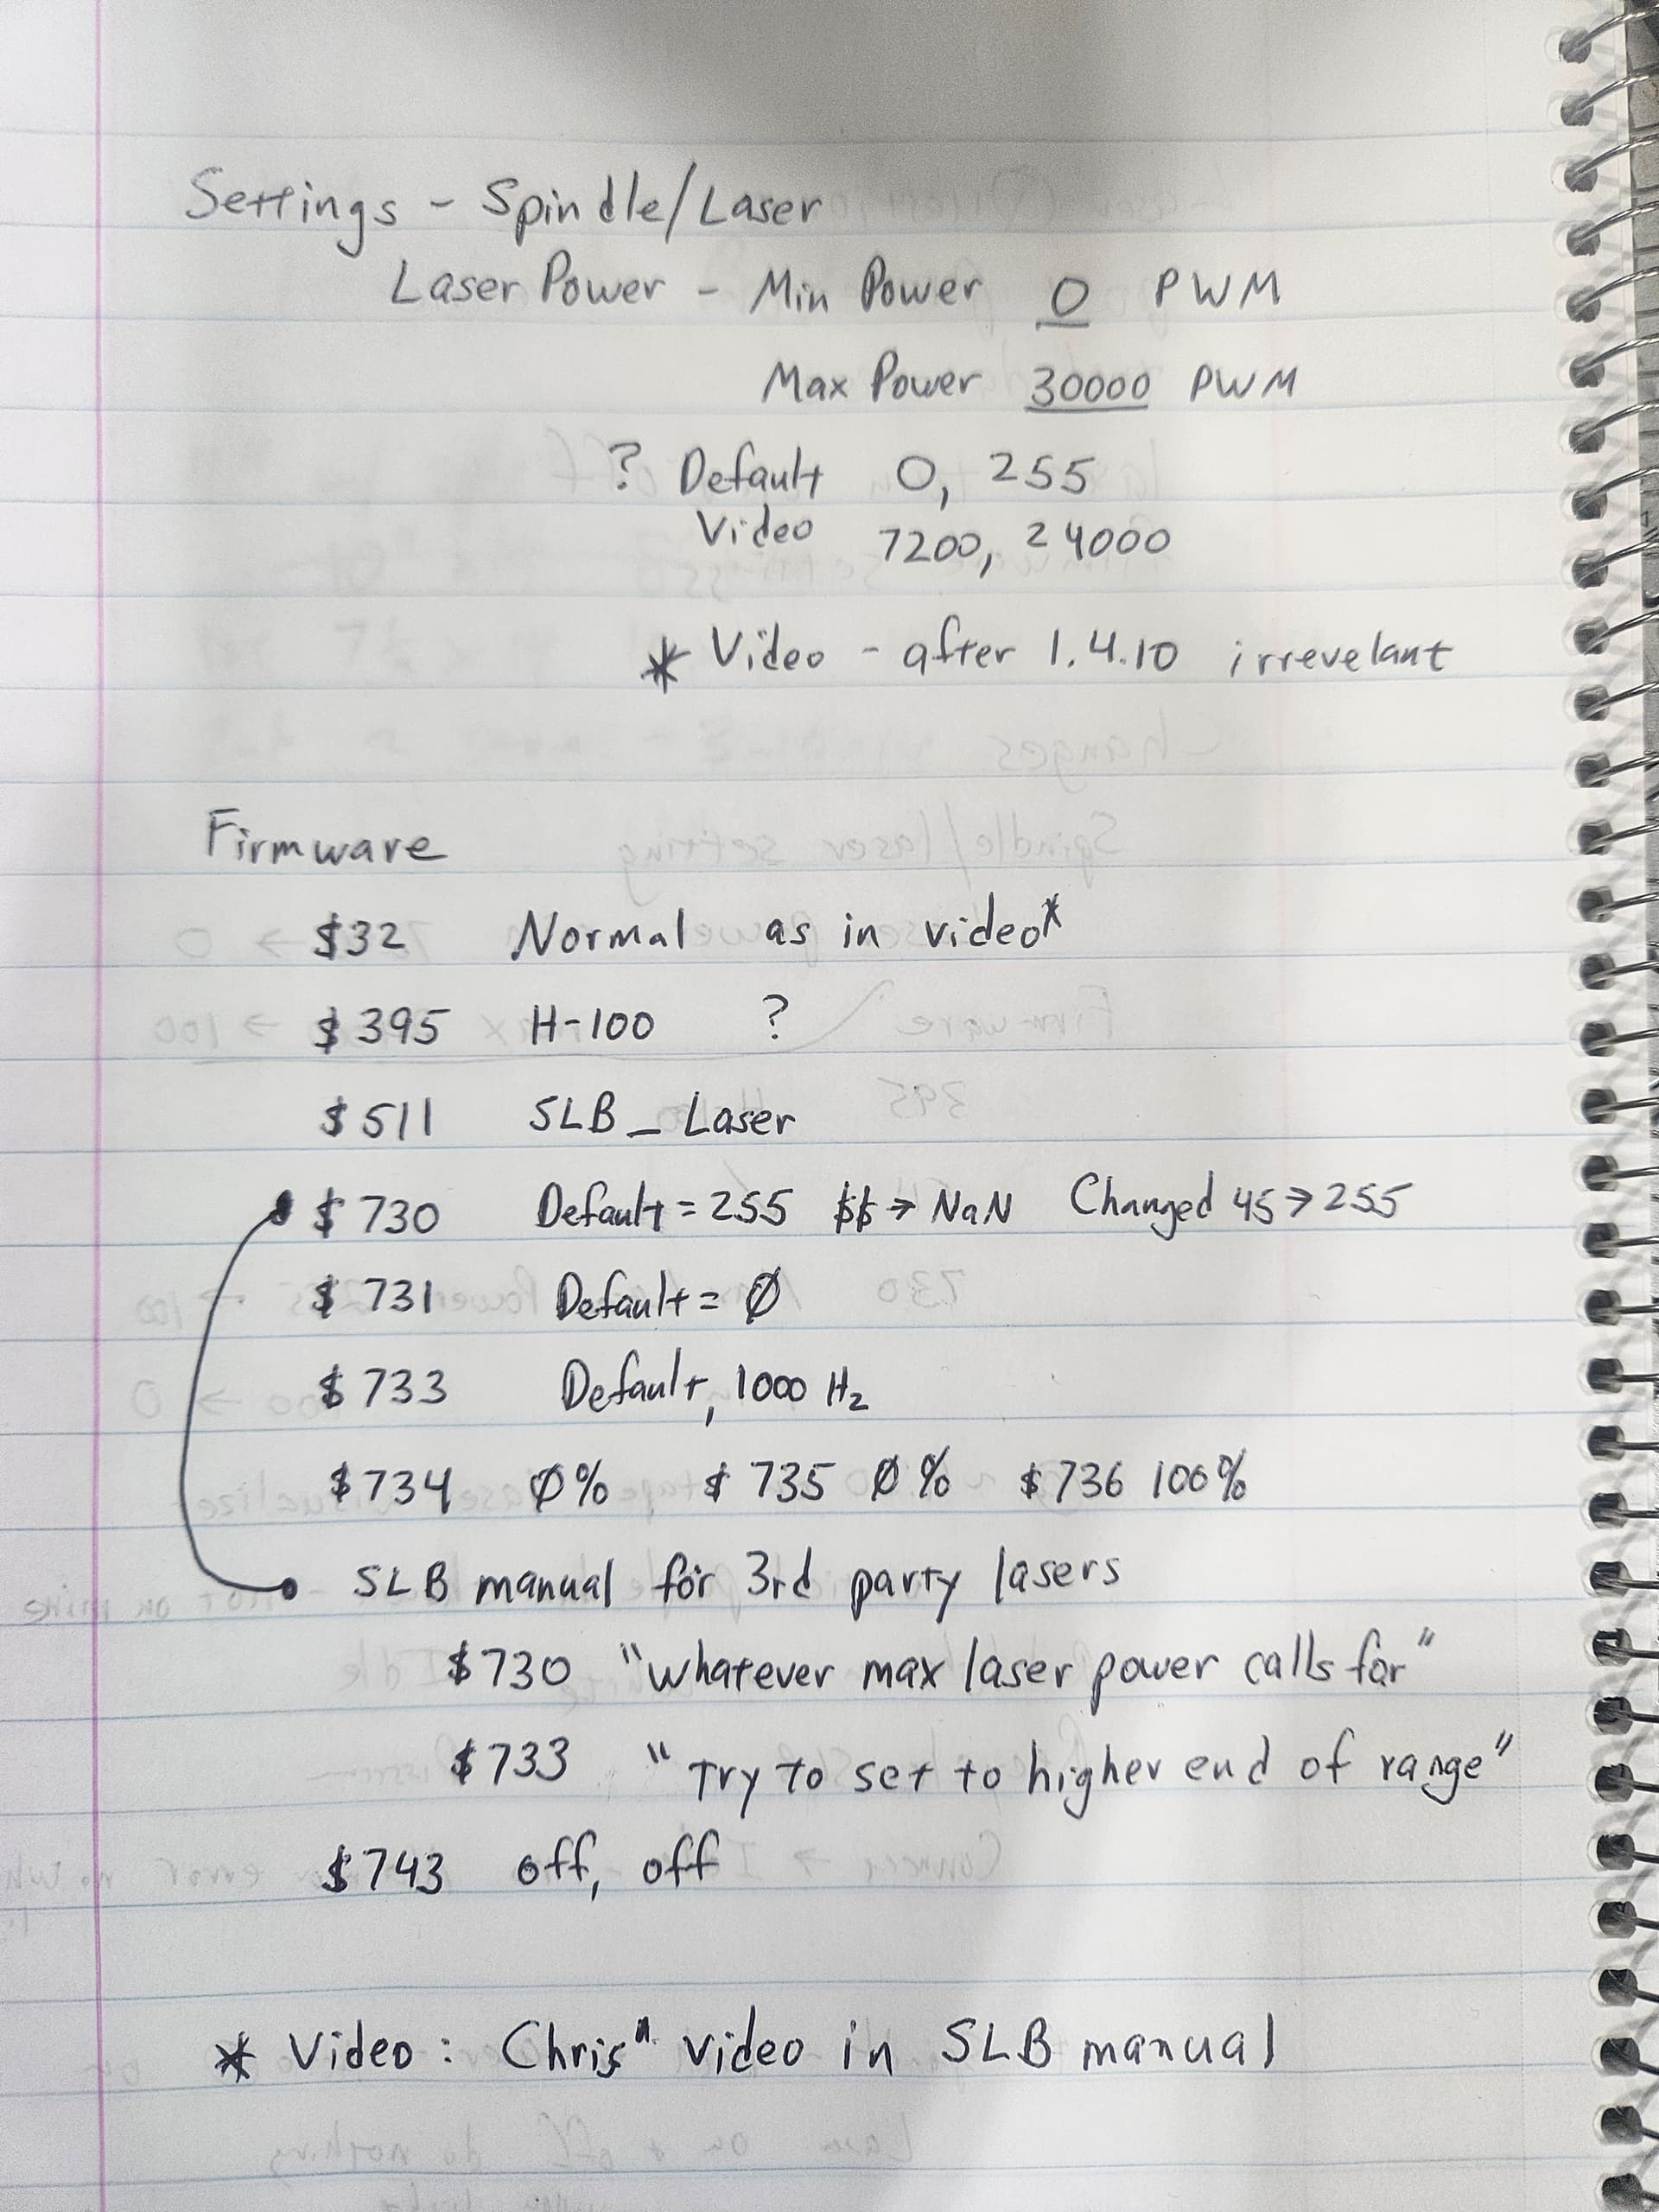 Settings - Spindle/Laser
Laser Power - Min Power 0 PWM
Max Power 30000 PWM
? Default 0, 255
Video 7200, 24000
* Video - after 1.4.10 irrevelant
Firmware
$32 Normal as in video*
$395 H-100 ?
$511 SLB_Laser
$730 Default = 255 $$→NaN Changed 45→255
$731 Default = Ø
$733 Default, 1000 Hz
$734 Ø% $735 Ø% $736 100%
SLB manual for 3rd party lasers
$730 "whatever max laser power calls for"
$733 "Try to set to higher end of range"
$743 off, off
* Video: Chris" video in SLB manual